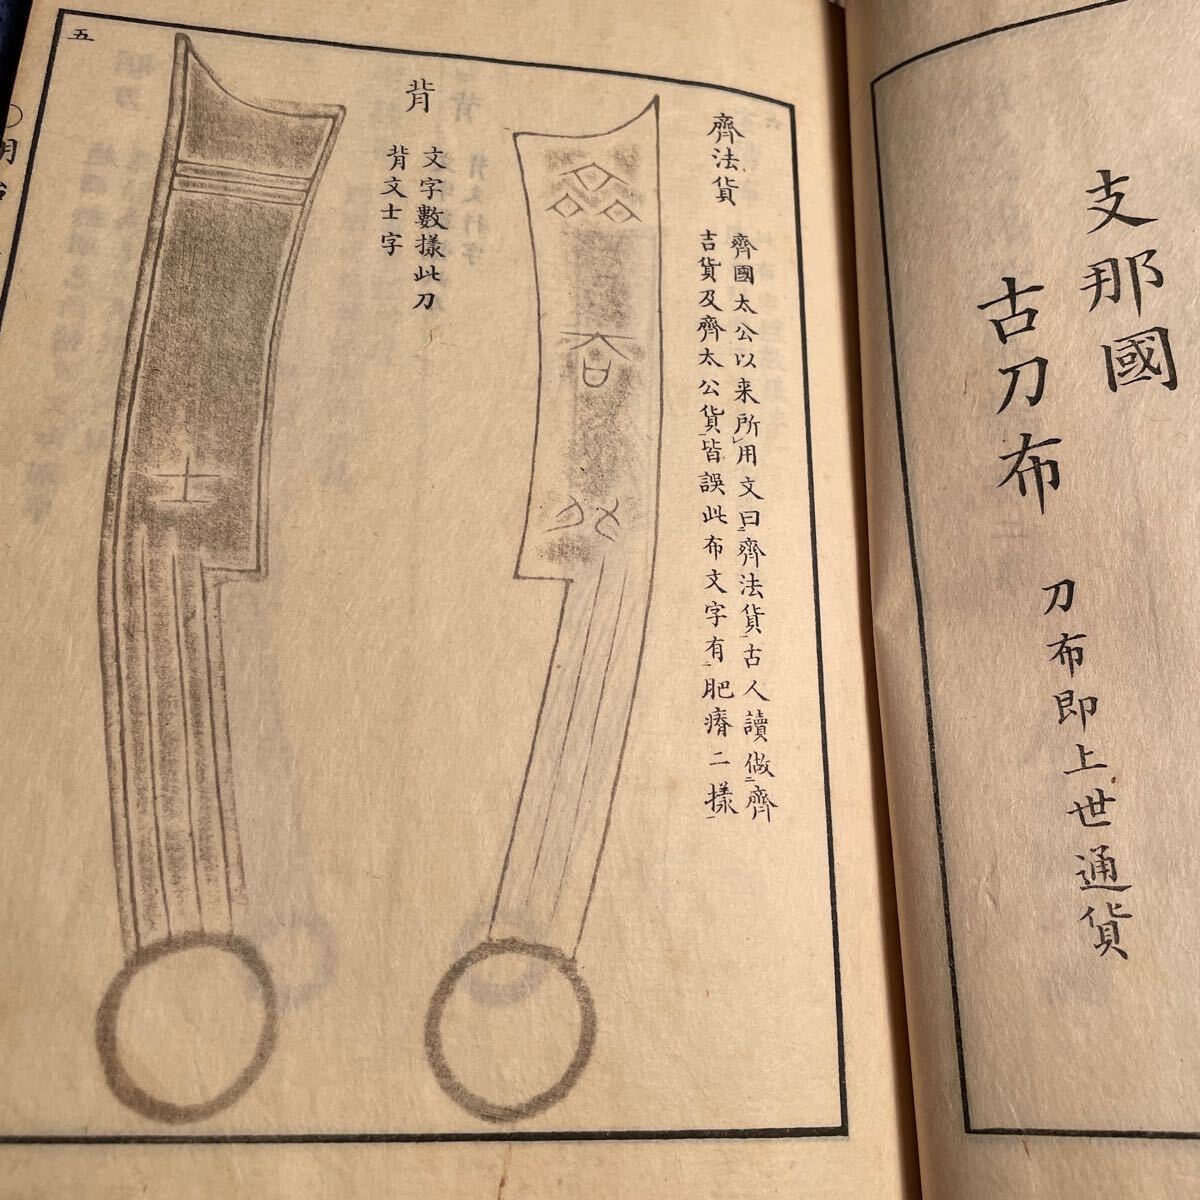 支那國
古刀布
刀布即上世通貨
齊法貨
齊國太公以来所用文曰齊法貨古人讀做齊
吉貨及齊太公貨皆誤此布文字有肥瘠二樣
背
文字數樣此刀
背文士字
士
五